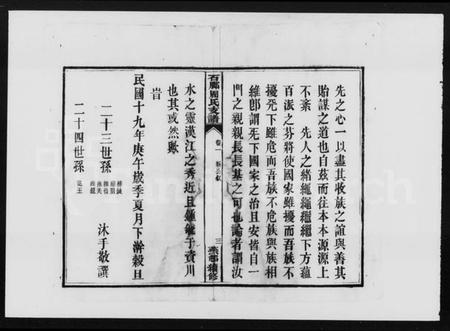 先之心一以盡其收族之誼與善其
貽謀之道也自茲而往本本源源上
不紊先人之緒繩繩繼繼下方蘊
百派之芬將使國家雖擾而吾族不
擾死下雖危而吾族不危族與族相
維卽謂死下國家之治且安皆自一
門之親親長長基之可也論者謂汝
水之靈漢江之秀近且鍾毓于資川
也其或然歟
旹
民國十九年庚午歲季夏月下澣穀旦
二十三世孫
二十四世孫
沐手敬譔
周氏支譜
卷一
三
續修